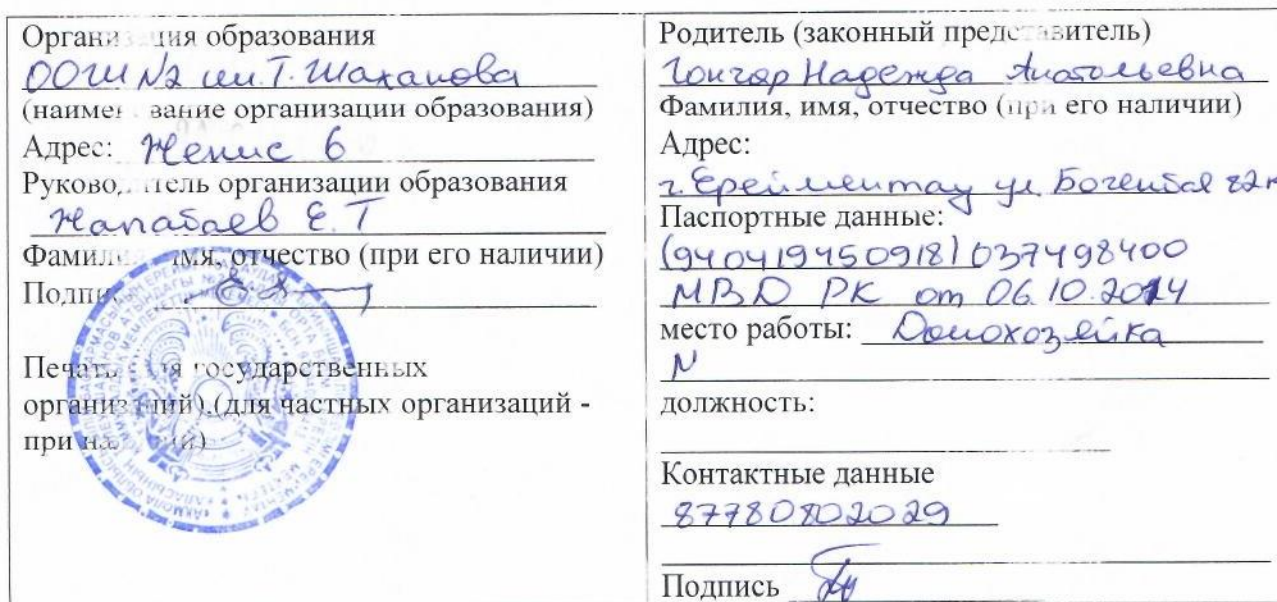 Организация образования
ООШ №2 им. Т. Шаханова
(наименование организации образования)
Адрес: Женис 6
Руководитель организации образования
Жапабаев Е. Т
Фамилия, имя, отчество (при его наличии)
Подпись
Печать (для государственных
организаций),(для частных организаций -
при наличии)
Родитель (законный представитель)
Гончар Надежда Анатольевна
Фамилия, имя, отчество (при его наличии)
Адрес:
г. Ерейментау ул. Богенбая 82
Паспортные данные:
(940419450918) 037498400
МВД РК от 06.10.2014
место работы: Домохозяйка
должность:
Контактные данные
87780802029
Подпись